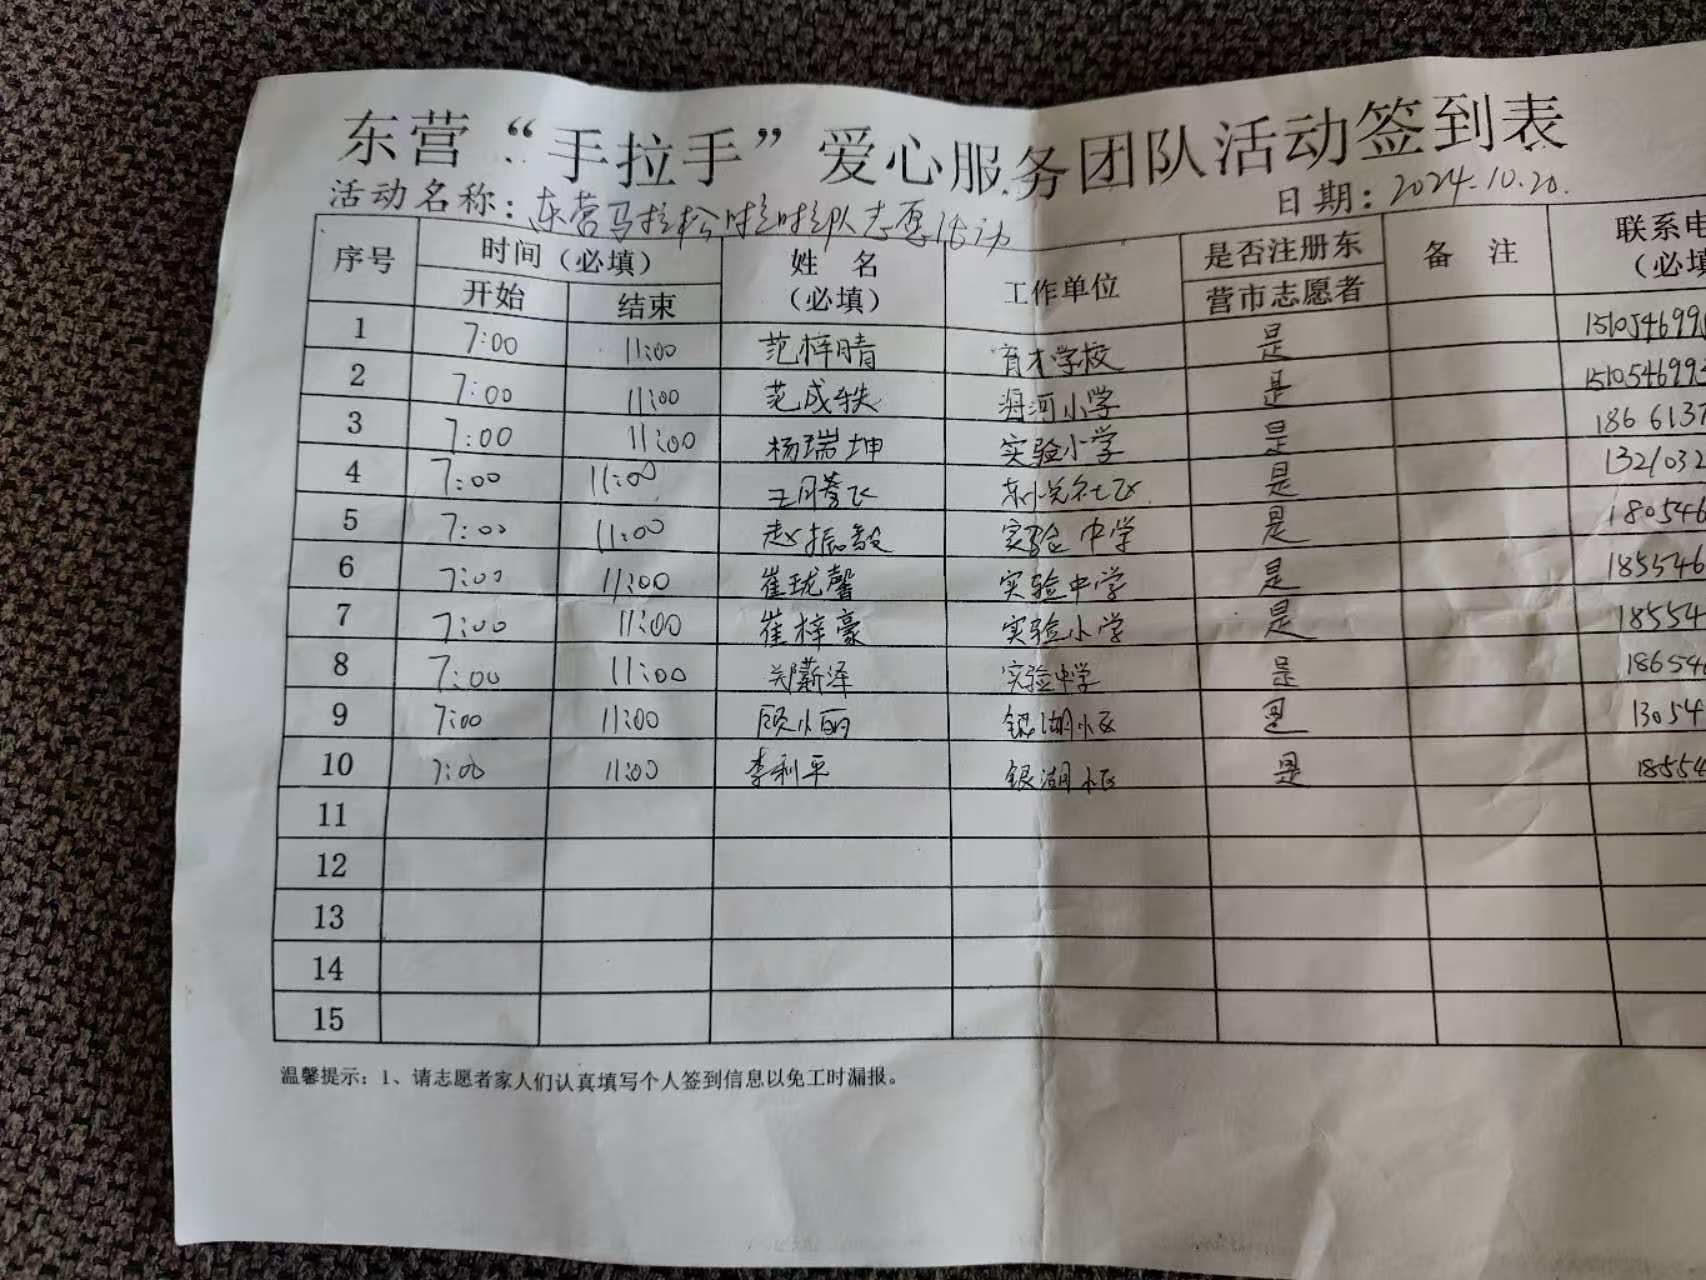 东营“手拉手”爱心服务团队活动签到表
活动名称：东营马拉松啦啦队志愿活动 日期：2024.10.20.
序号 时间（必填） 姓 名（必填） 工作单位 是否注册东营市志愿者 备 注 联系电（必填
开始 结束
1 7:00 11:00 范梓晴 育才学校 是 151054699
2 7:00 11:00 范成轶 海河小学 是 151054699
3 7:00 11:00 杨瑞坤 实验小学 是 1866137
4 7:00 11:00 王月 是 1321032
5 7:00 11:00 赵振毅 实验中学 是 180546
6 7:00 11:00 崔珑馨 实验中学 是 185546
7 7:00 11:00 崔梓豪 实验小学 是 18554
8 7:00 11:00 郑薪泽 实验中学 是 186546
9 7:00 11:00 顾小丽 银湖小区 是 13054
10 7:00 11:00 李利平 银湖小区 是 18554
11
12
13
14
15
温馨提示：1、请志愿者家人们认真填写个人签到信息以免工时漏报。